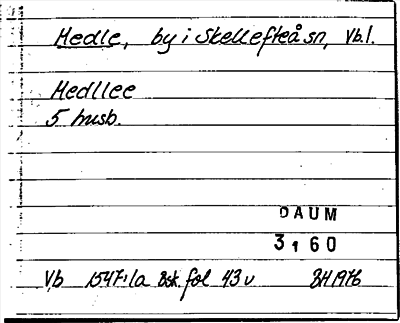 Medle, by i Skellefteå sn, Vb.l.
Medllee
5 husb.
DAUM
3160
Vb 1547:1a Bsk. fol 43 v BH 1976